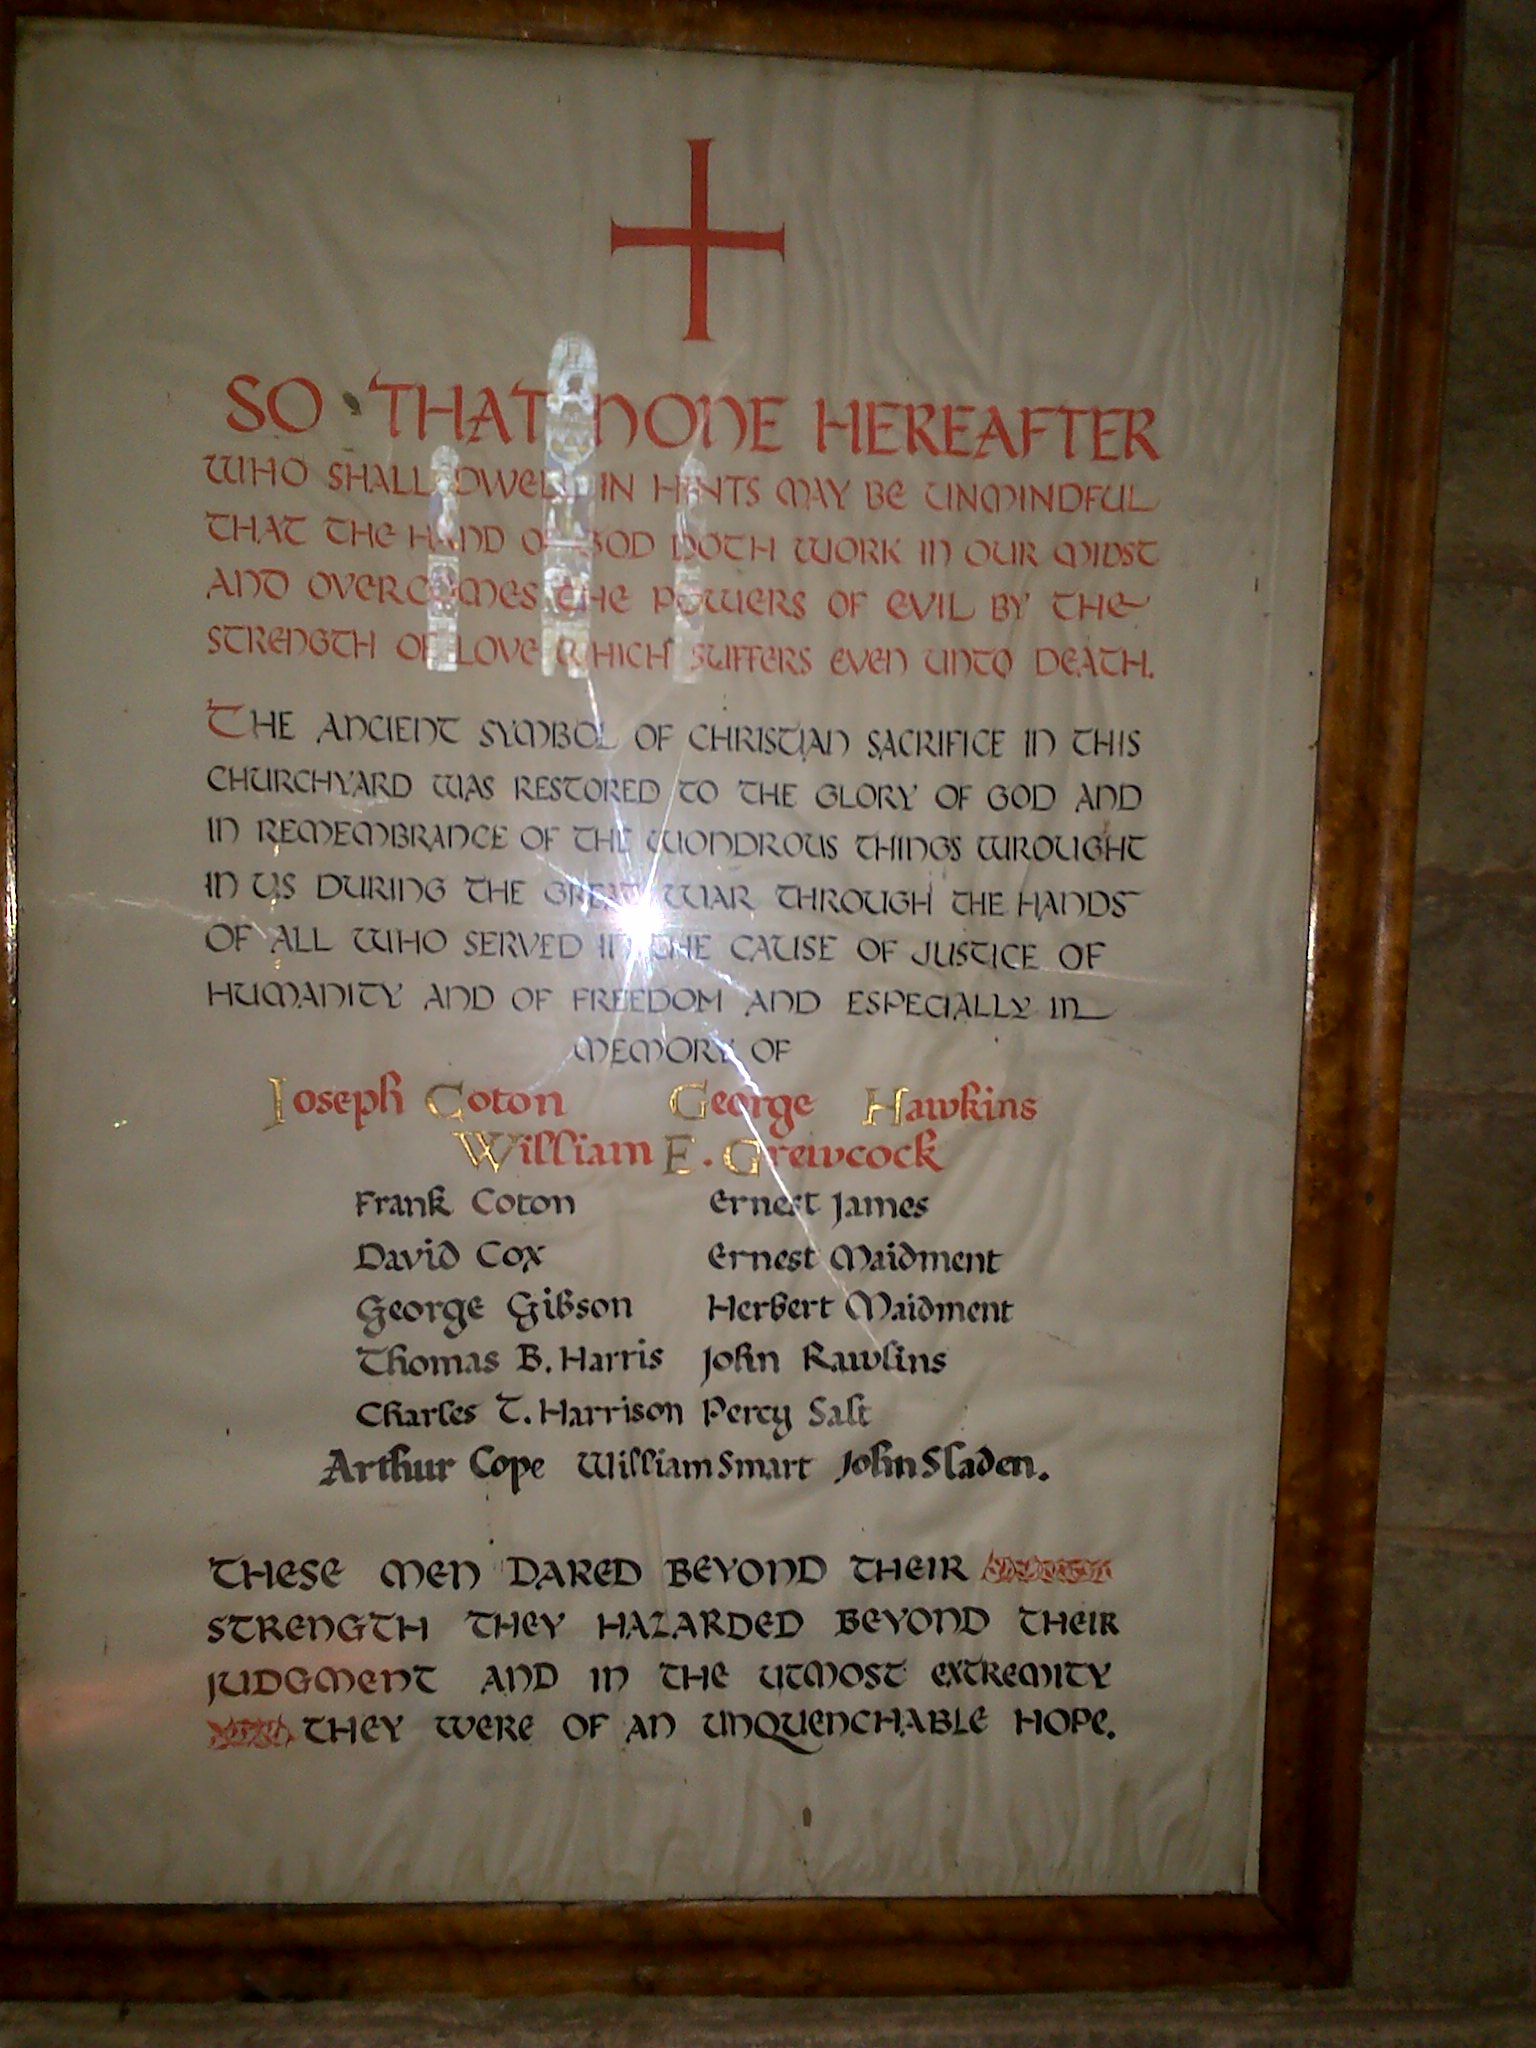 SO THAT NONE HEREAFTER
WHO SHALL DWELL IN HINTS MAY BE UNMINDFUL
THAT THE HAND OF GOD DOTH WORK IN OUR MIDST
AND OVERCOMES THE POWERS OF EVIL BY THE
STRENGTH OF LOVE WHICH SUFFERS EVEN UNTO DEATH.
THE ANCIENT SYMBOL OF CHRISTIAN SACRIFICE IN THIS
CHURCHYARD WAS RESTORED TO THE GLORY OF GOD AND
IN REMEMBRANCE OF THE WONDROUS THINGS WROUGHT
IN US DURING THE GREAT WAR THROUGH THE HANDS
OF ALL WHO SERVED IN THE CAUSE OF JUSTICE OF
HUMANITY AND OF FREEDOM AND ESPECIALLY IN
MEMORY OF
Joseph Coton George Hawkins
William E. Grewcock
Frank Coton Ernest James
David Cox Ernest Maidment
George Gibson Herbert Maidment
Thomas B. Harris John Rawlins
Charles T. Harrison Percy Salt
Arthur Cope William Smart John Sladen.
THESE MEN DARED BEYOND THEIR
STRENGTH THEY HAZARDED BEYOND THEIR
JUDGMENT AND IN THE UTMOST EXTREMITY
THEY WERE OF AN UNQUENCHABLE HOPE.